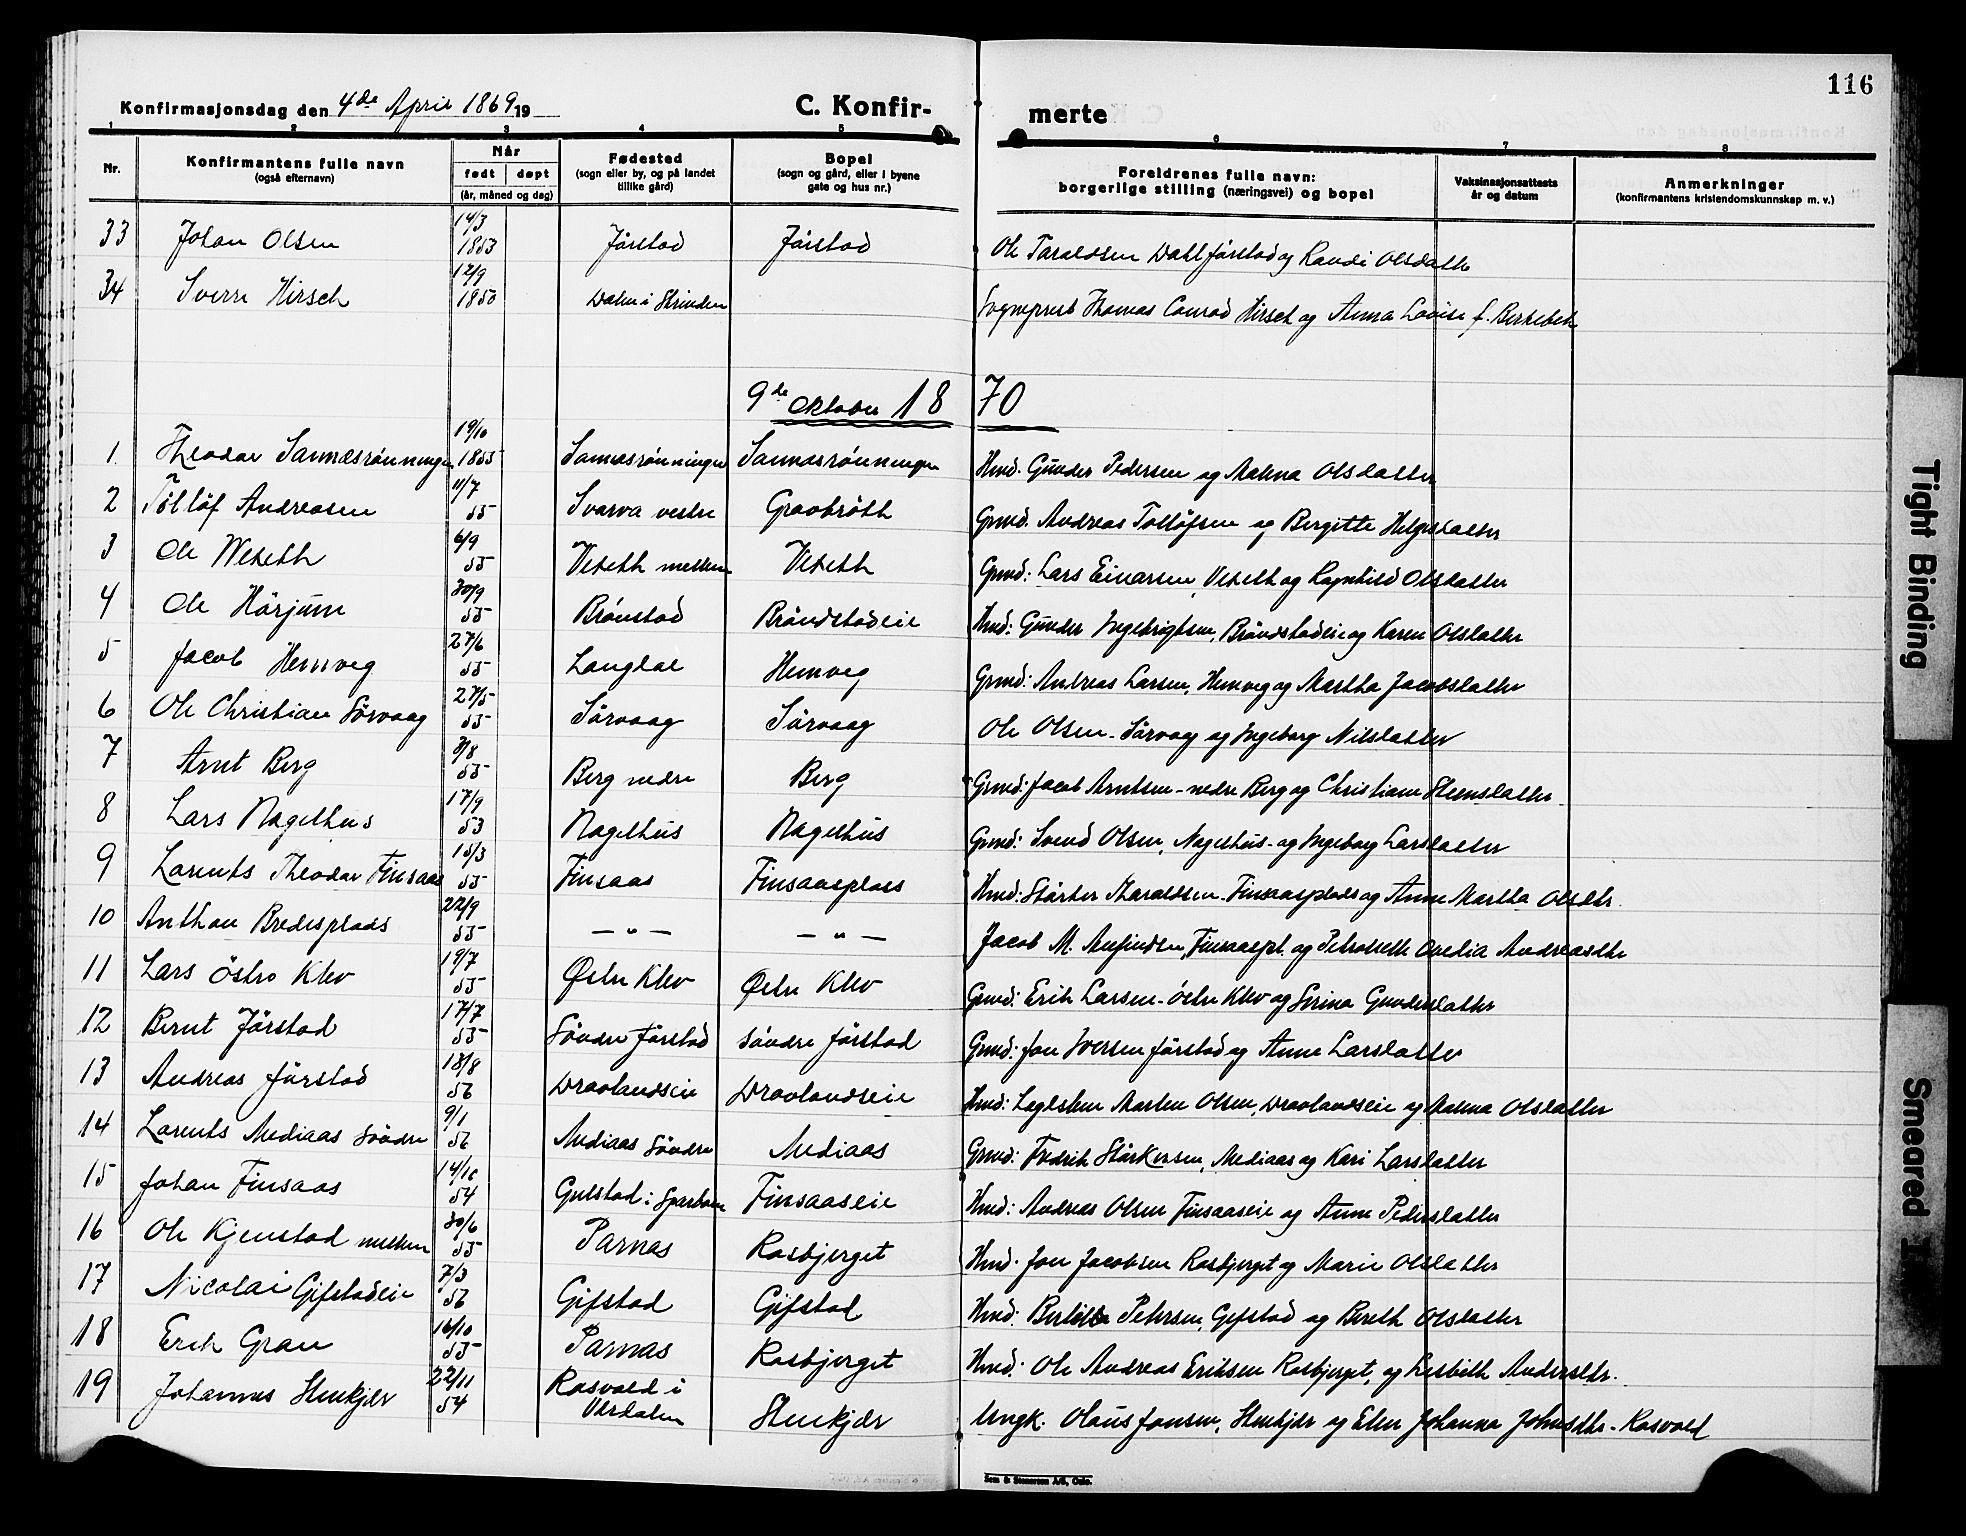 116
Konfirmasjonsdag den 4de April 1869 19
C. Konfirmerte
1 2 3 4 5 6 7 8
Nr. Konfirmantens fulle navn (også efternavn) Når født døpt (år, måned og dag) Fødested (sogn eller by, og på landet tillike gård) Bopel (sogn og gård, eller i byene gate og hus nr.) Foreldrenes fulle navn: borgerlige stilling (næringsvei) og bopel Vaksinasjonsattests år og datum Anmerkninger (konfirmantens kristendomskunnskap m. v.)
33 Johan Olsen 14/3 1853 Jørstad Jørstad Ole Taraldsen Dahl Jørstad og Randi Olsdatter
34 Sverre Hirsch 12/9 1850 Dalen i Strinden Sogneprest Thomas Conrad Hirsch og Anna Lovise f. Birkebek
9de Oktober 1870
1. Theodor Sannæsrønningen 19/10 1855 Sannæsrønningen Sannæsrønningen Hmd. Gunder Pedersen og Malena Olsdatter
2 Tølløf Andreasen 11/7 55 Svarva vestre Gravbrøtt Grmd. Andreas Tølløfsen og Bergitte Helgesdatter
3 Ole Weteth 6/9 55 Veteth mellem Veteth Grmd: Lars Einarsen, Veteth og Ragnhild Olsdatter
4 Ole Hørjum 30/9 55 Brønstad Brøndstadeie Hmd: Gunder Ingebrigtsen, Brøndstadeie og Karen Olsdatter
5 Jacob Hemveg 27/6 55 Langdal Hemveg Grmd: Andreas Larsen, Hemveg og Martha Jacobsdatter
6 Ole Christian Sørvaag 27/5 55 Sørvaag Sørvaag Ole Olsen - Sørvaag og Ingeborg Nilsdatter
7 Arnt Berg 3/8 55 Berg nedre Berg Grmd: Jacob Arntsen - nedre Berg og Christiane Stensdatter
8 Lars Nagelhus 17/9 53 Nagelhus Nagelhus Grmd: Svend Olsen, Nagelhus - og Ingeborg Larsdatter
9 Lorents Theodor Finsaas 15/3 55 Finsaas Finsaasplads Hmd: Størker Haraldsen - Finsaasplads og Anne Martha Olsdtr.
10 Anthon Bredesplads 22/9 55 — " — — " — Jacob M. Anfindsen, Finsaaspl. og Petronelle Ovedia Andreasdtr
11 Lars Østre Klev 19/7 55 Østre Klev Østre Klev Grmd: Erik Larsen - østre Klev og Serina Gundersdatter
12 Bernt Jørstad 17/7 55 Søndre Jørstad søndre Jørstad Grmd: Jon Iversen Jørstad og Anne Larsdatter
13 Andreas Jørstad 18/8 56 Dravlandseie Dravlandseie Hmd: Leglstem Morten Olsen, Dravlandseie og Malena Olsdatter
14 Lorents Mediaas Søndre 9/1 56 Mediaas Søndre Mediaas Grmd: Fredrik Størkersen, Mediaas og Kari Larsdatter
15 Johan Finsaas 14/10 54 Gulstad i Sparboen Finsaaseie Hmd: Andreas Olsen Finsaaseie og Anne Pedersdatter
16 Ole Kjenstad mellem 30/6 55 Parnas Rosbjerget Hmd. Jon Jacobsen Rosbjerget og Marie Olsdatter
17 Nicolai Gifstadeie 7/3 56 Gifstad Gifstad Hmd: Petersen, Gifstad og Bereth Olsdatter
18 Erik Gran 16/10 55 Parnas Rosbjerget Hmd. Ole Andreas Eriksen Rosbjerget, og Lisbeth Andersdtr.
19 Johannes Stenkjær 22/11 54 Rosvold i Verdalen Stenkjær Ungk. Olaus Jonsen, Stenkjær og Ellen Johanna Johnsdtr - Rosvold
Sem & Stenersen A/S, Oslo.
Tight Binding
Smeared